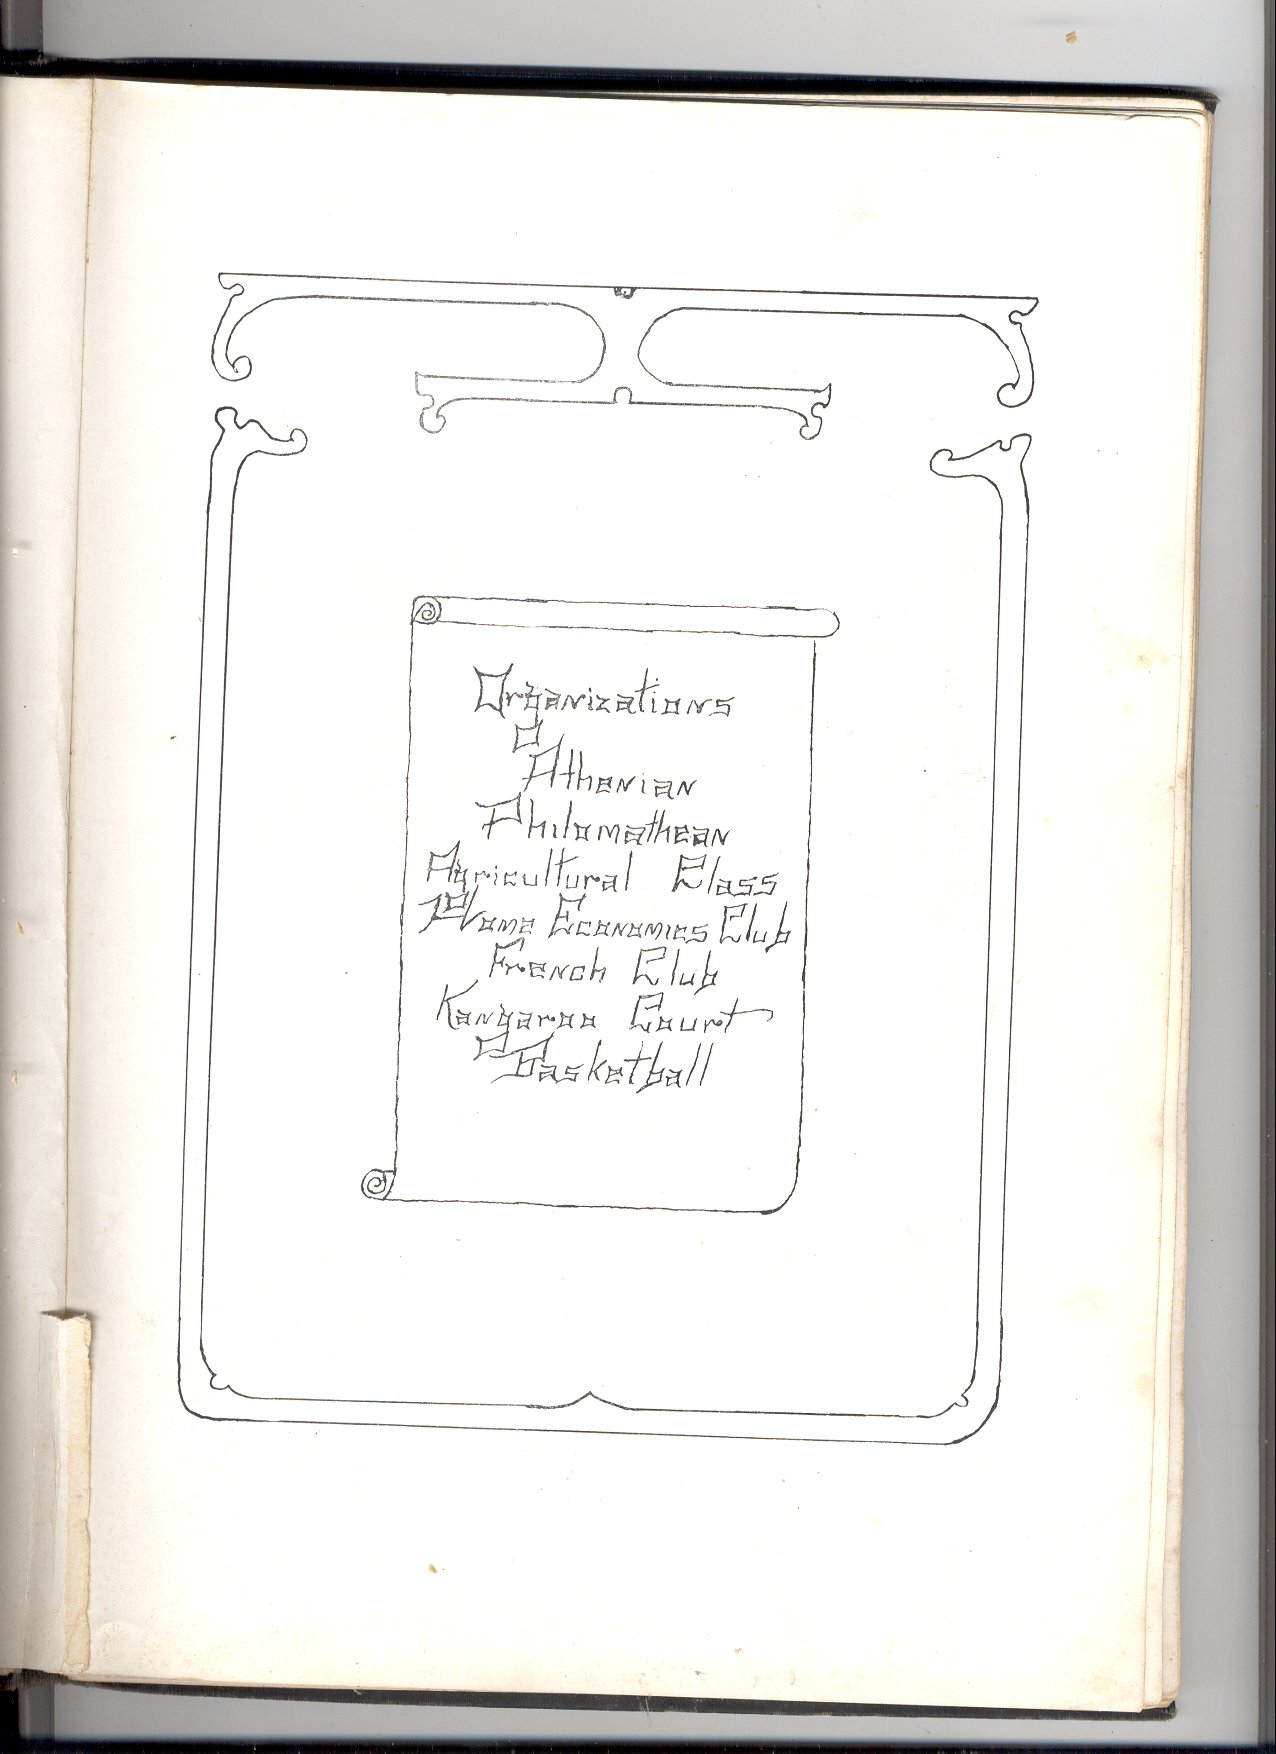 Organizations
Athenian
Philomathean
Agricultural Class
Home Economics Club
French Club
Kangaroo Court
Basketball